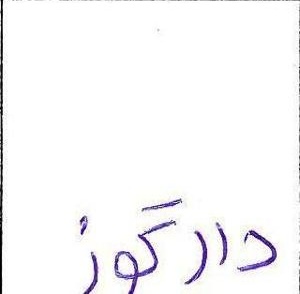 دارگوز